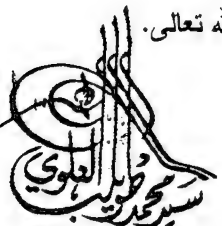 لله تعالى.
سيد محمد طويلب العلوي